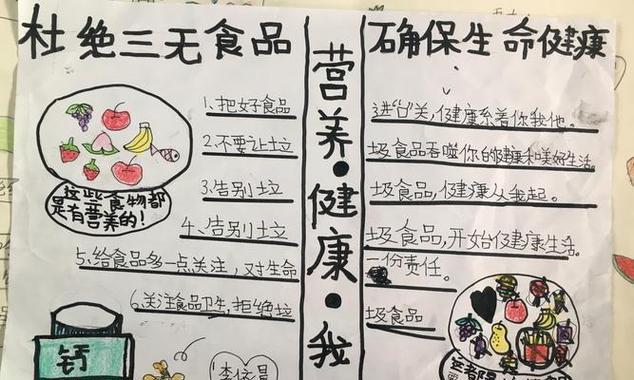 杜绝三无食品
确保生命健康
营养·健康·我
1、把好食品
进“口”关,健康系着你我他。
2、不要让垃
圾食品吞噬你的健康和美好生活。
3、告别垃
圾食品,健康从我起。
4、告别垃
圾食品,开始健康生活。
5、给食品多一点关注,对生命
一份责任。
6、关注食品卫生,拒绝垃
圾食品
这些食物都
是有营养的!
钙